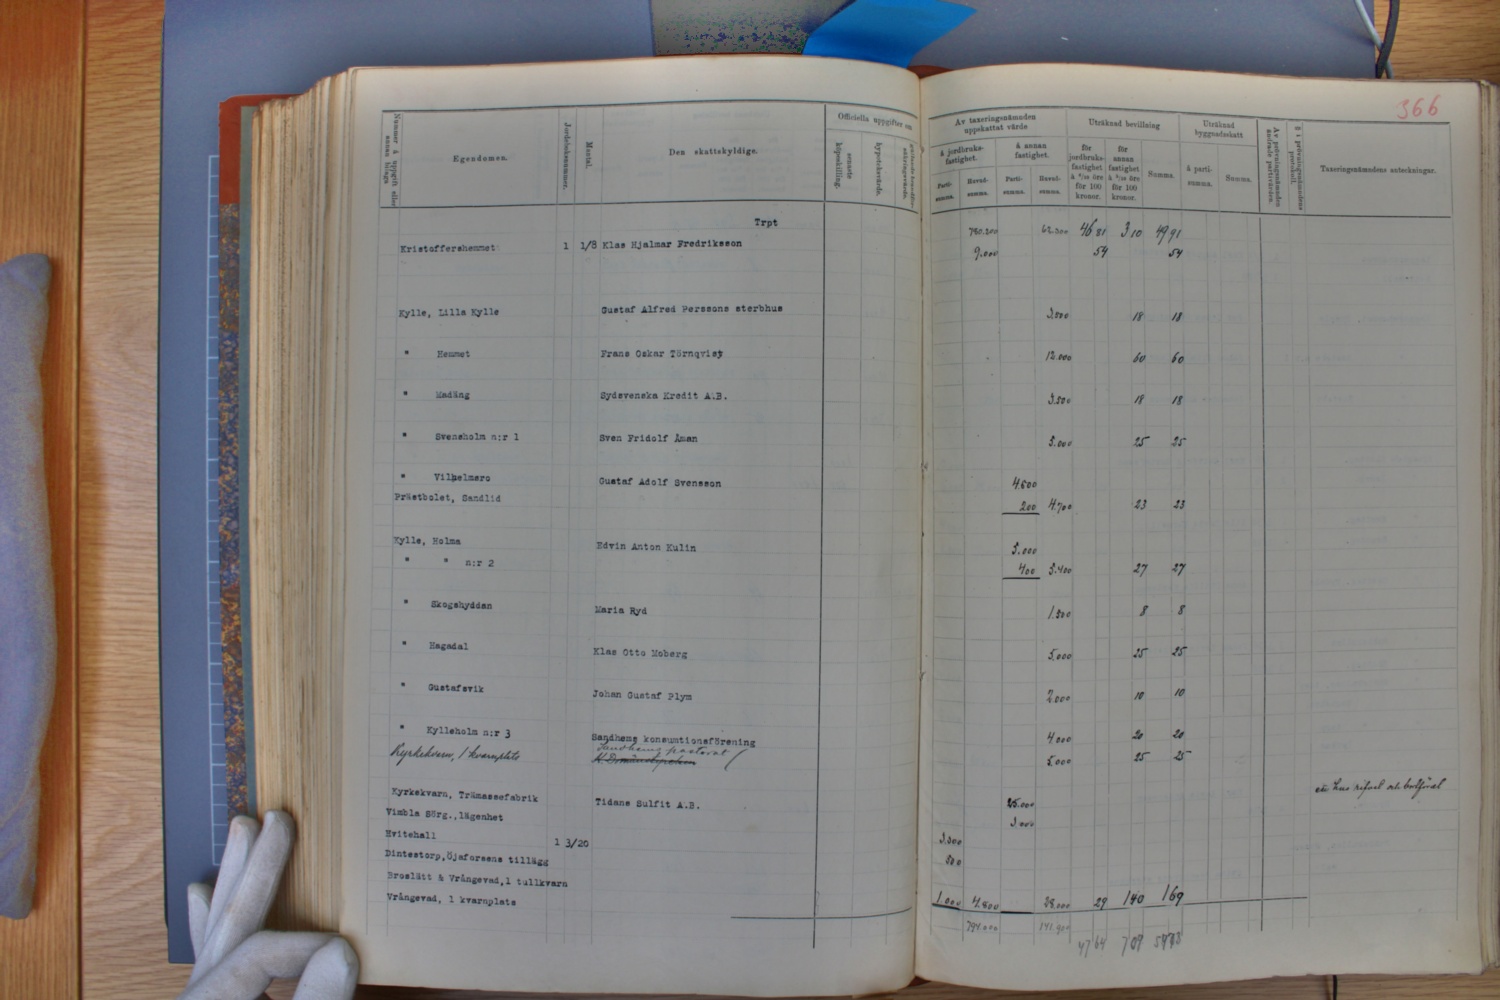 366
Nummer å uppgift eller annan bilaga
Egendomen.
Jordeboksnummer.
Mantal.
Den skattskyldige.
Officiella uppgifter om
senaste köpeskilling.
hypoteksvärde.
Av taxeringsnämnden uppskattat värde
å jordbruksfastighet.
å annan fastighet.
Partisumma.
Huvudsumma.
Partisumma.
Huvudsumma.
Uträknad bevillning
för jordbruksfastighet å 6/10 öre för 100 kronor.
för annan fastighet å 5/10 öre för 100 kronor.
Summa.
Uträknad byggnadsskatt
å partisumma.
Summa.
Av prövningsnämnden ändrade partivärden.
§ i prövningsnämndens protokoll.
Taxeringsnämndens anteckningar.
Trpt 780.200 62.300 46 81 3 10 49 91
Kristoffershemmet 1 1/8 Klas Hjalmar Fredriksson 9.000 54 54
Kylle, Lilla Kylle Gustaf Alfred Perssons sterbhus 3.500 18 18
" Hemmet Frans Oskar Törnqvist 12.000 60 60
" Madäng Sydsvenska Kredit A.B. 3.500 18 18
" Svensholm n:r 1 Sven Fridolf Åman 5.000 25 25
" Vilhelmsro Gustaf Adolf Svensson 4.500
Prästbolet, Sandlid 200 4.700 23 23
Kylle, Holma Edvin Anton Kulin 5.000
" " n:r 2 400 5.400 27 27
" Skogshyddan Maria Ryd 1.500 8 8
" Hagadal Klas Otto Moberg 5.000 25 25
" Gustafsvik Johan Gustaf Plym 2.000 10 10
" Kylleholm n:r 3 Sandhems konsumtionsförening 4.000 20 20
Kyrkekvarn, 1 kvarnplats Sandhems pastorat 5.000 25 25
Kyrkekvarn, Trämassefabrik Tidans Sulfit A.B. 25.000
Vimbla Sörg., lägenhet 3.000
Hvitehall 1 3/20 3.300
Dintestorp, Öjaforsens tillägg 500
Broslätt & Vrångevad, 1 tullkvarn
Vrångevad, 1 kvarnplats 1 000 4.800 28.000 29 140 169
794.000 141.900
47 64 7 09